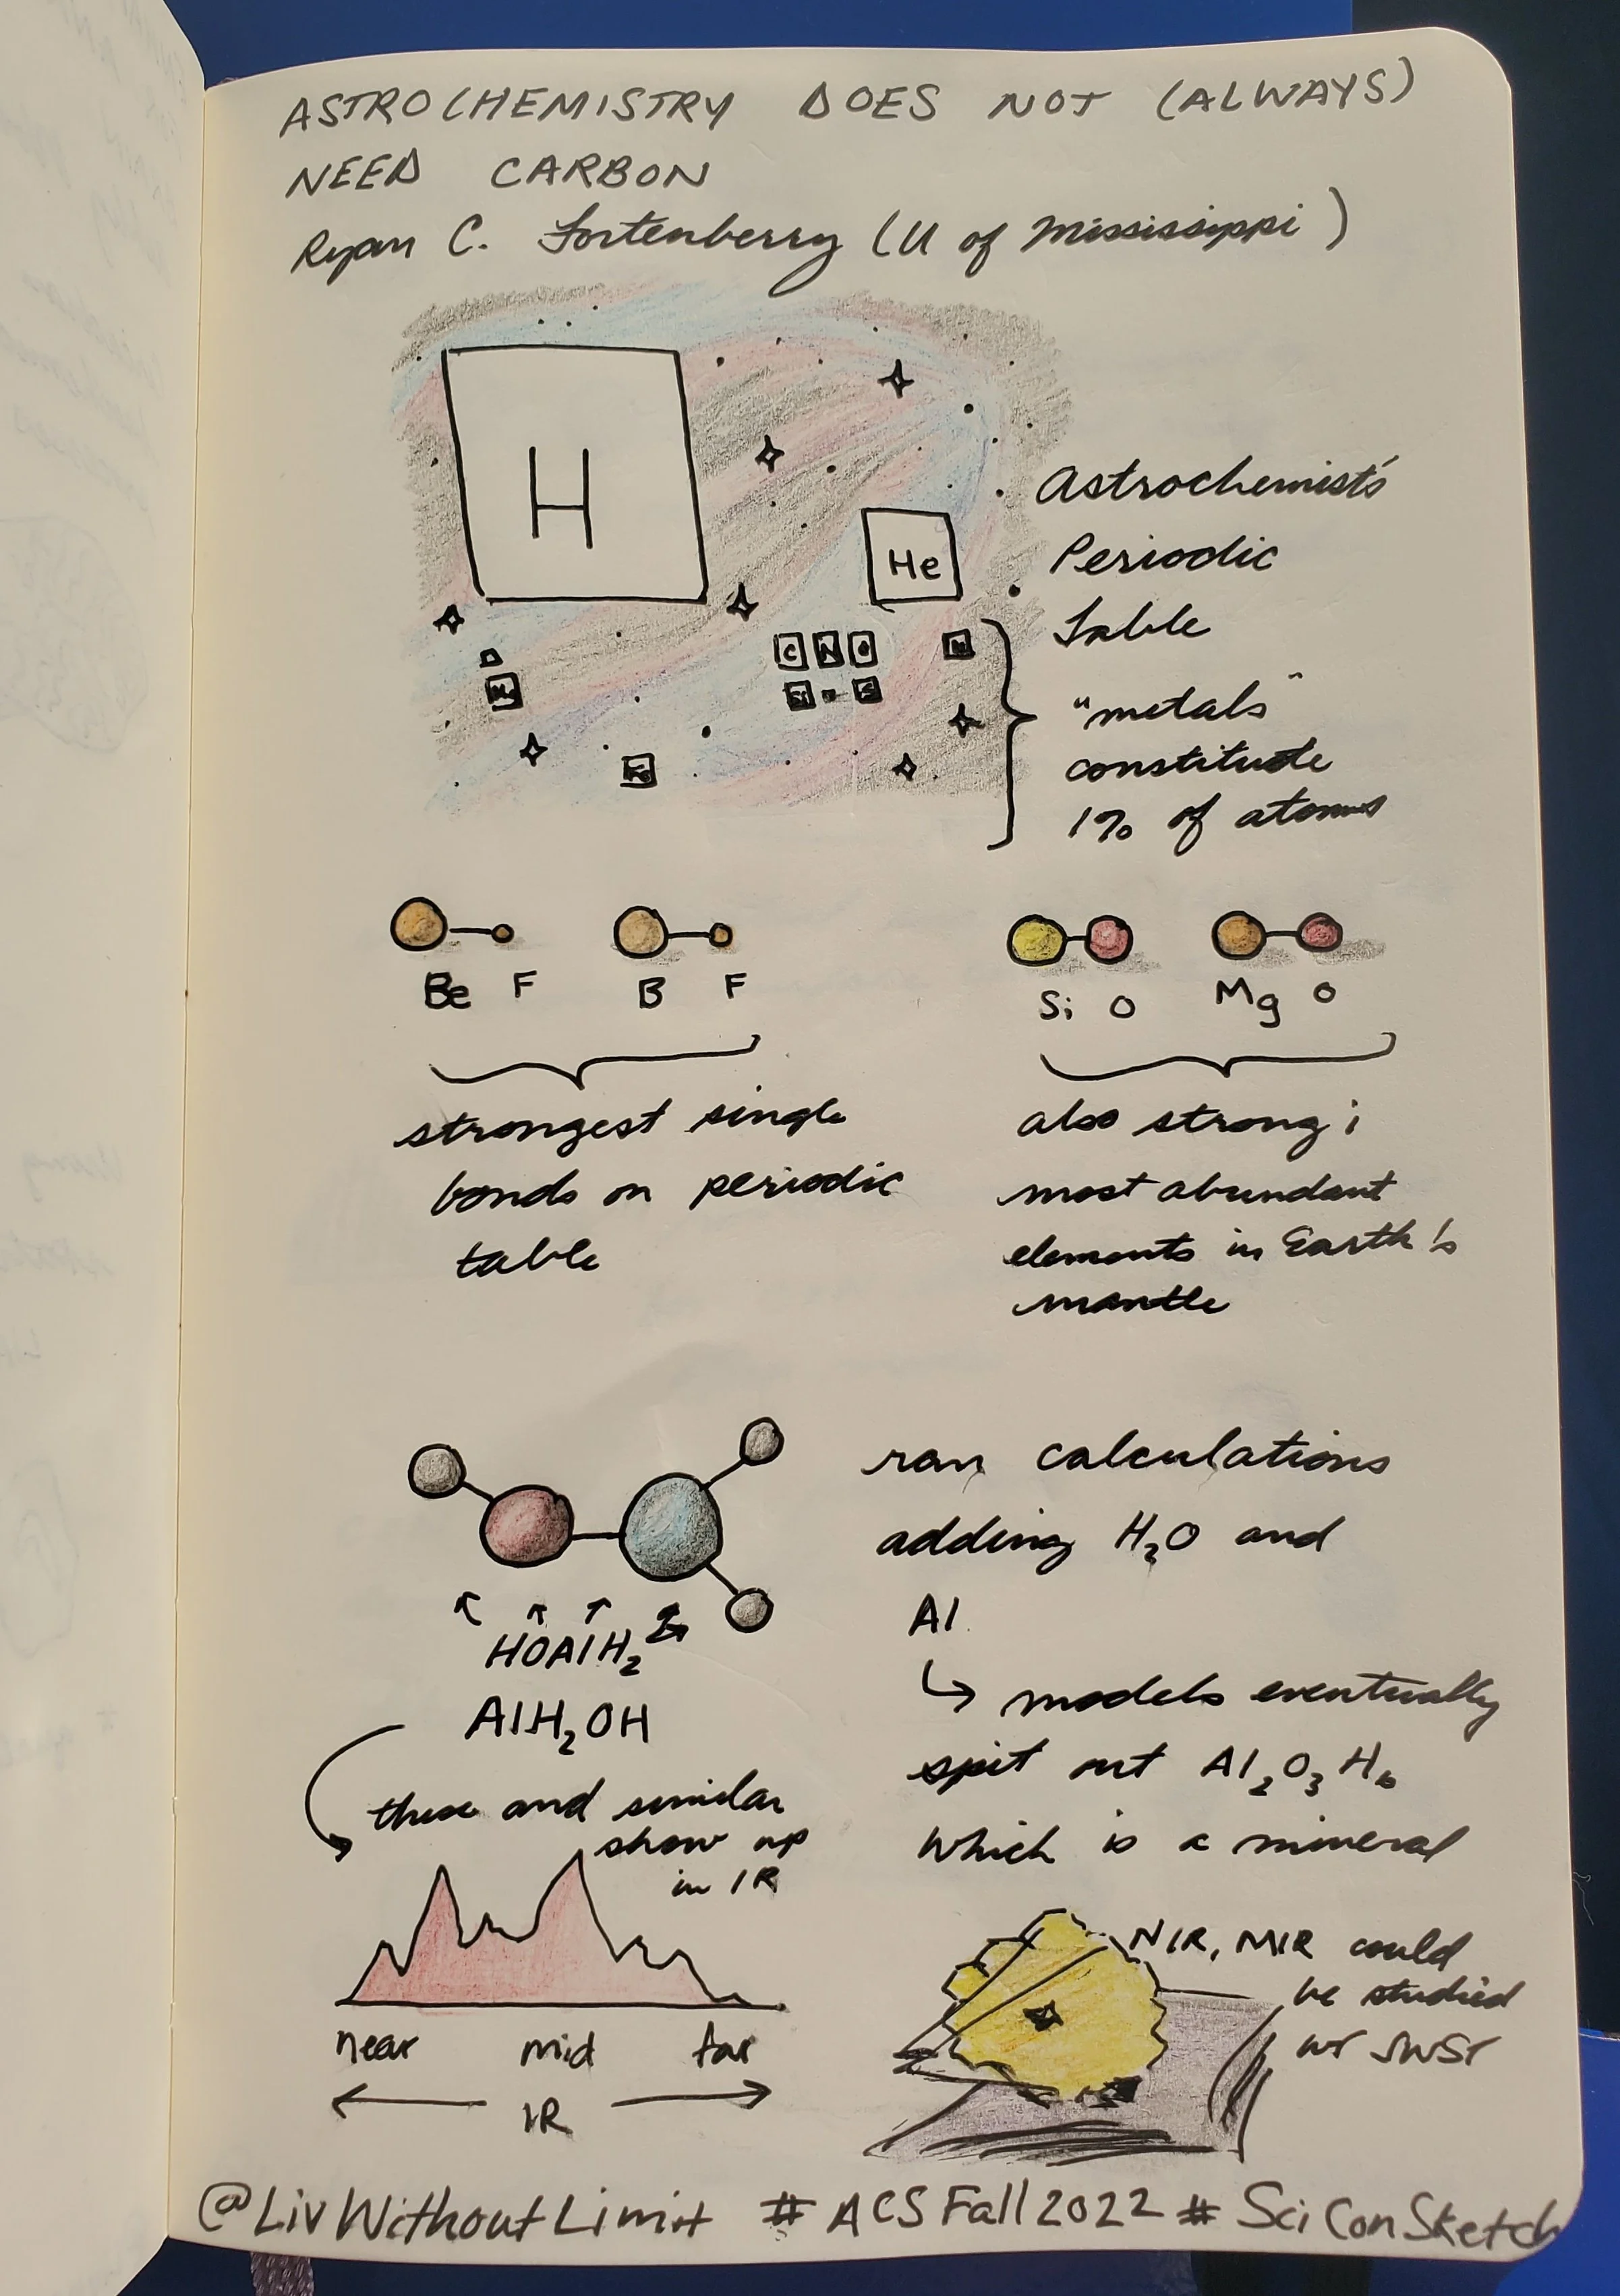 ASTROCHEMISTRY DOES NOT (ALWAYS)
NEED CARBON
Ryan C. Fortenberry (U of Mississippi)
H
He
Astrochemist's
Periodic
Table
C N O
Si S
Mg
Fe
"metals"
constitute
1% of atoms
Be F
B F
Si O
Mg O
strongest single
bonds on periodic
table
also strong;
most abundant
elements in Earth's
mantle
ran calculations
adding H₂O and
Al
↳ models eventually
spit out Al₂O₃H₆
which is a mineral
HOAlH₂
AlH₂OH
these and similar
show up
in IR
near mid far
IR
NIR, MIR could
be studied
w/ JWST
@LivWithoutLimit #ACSFall2022 #SciConSketch